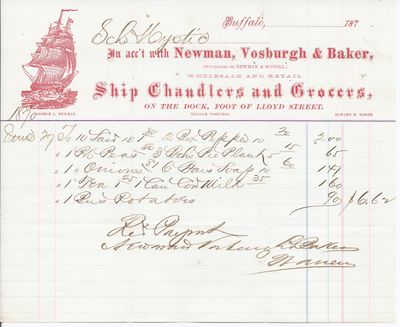 Buffalo, 187
Sch Mystic
In acc't with Newman, Vosburgh & Baker,
(Successors to Newman & Scovill,)
WHOLESALE AND RETAIL
Ship Chandlers and Grocers,
ON THE DOCK, FOOT OF LLOYD STREET.
GEORGE L. NEWMAN WILLIAM VOSBURGH. HOWARD H. BAKER
1870
June 27 To 10 15 2 Box Pepper 10 30 2.00
" 1 Pk Peas 50 3 Pie Plant 5 15 65
" 1 " Onions 6 Bars Soap 10 60 147
" 1 Tea 1 Can Con Milk 35 160
" 1 Bus Potatoes 90 $6.62
Rec Paymt
Newman Vosburgh & Baker